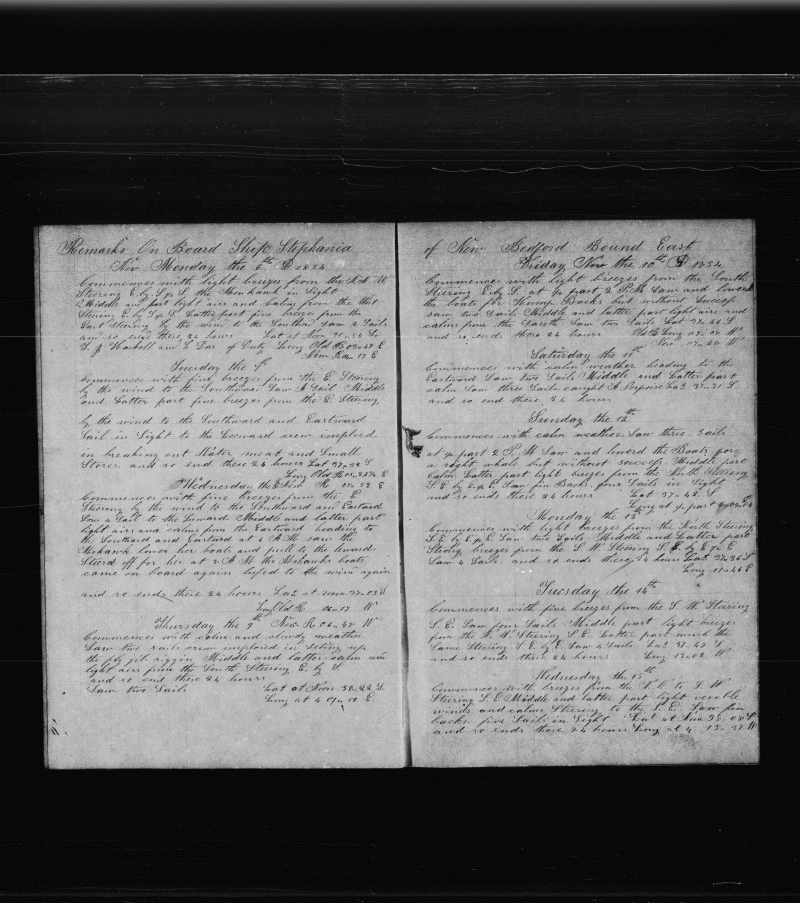 Remarks On Board Ship Stephania
Nov Monday the 6th D 1854
Commences with light breezes from the N. W
Steering E. by S &
Middle and part light airs and
Steering E. by S & S. Latter part fine breeze from the
East Steering by the wind to the Southard Saw 2 Sails
and so ends these 24 hours Lat at Noon
Haskell and Off of Duty Long Old R
New R 17 E
Tuesday the 7th
Commences with fine breezes from the E. Steering
by the wind to the Southard Saw A Sail Middle
and Latter part fine breezes from the E. Steering
by the wind to the Southward and Eastward
Sail in Sight to the Leeward crew imploied
in breaking out Water meat and Small
Stores. and so end these 24 hours Lat S
Long Old R E
Wednesday the 8 New R E
Commences with fine breezes from the E.
Steering by the wind to the Southward and Eastard
Saw a Sail to the Leward Middle and latter part
light airs and calms from the Eastward heading to
the Southard and Eastard at A M saw the
Mohawk lower her boats and pull to the leward
Steerd off for her at A M the Mohawks boats
came on board again lufed to the wind again
and so ends these 24 hours Lat at Noon S
Long Old R W
Thursday the 9th New R W
Commences with calm and cloudy weather
Saw two sails crew imploied in Seting up
the fly jib riggin Middle and latter calm and
light airs from the South Steering E. by S.
and so end these 24 hours
Saw two Sails Lat at Noon 38.22 S
Long at 4 E
of New Bedford Bound East
Friday Nov the 10th D 1854
Commences with light breezes from the South
Steering E by S at part 2 P.M Saw and lowerd
the boats for Hump Backs but without Success
saw two Sails Middle and latter part light airs and
calms from the Saw two Sails Lat S
and so ends these 24 hours Old R Long W
New W
Saturday the 11th
Commences with calm weather heading to the
Eastward Saw two Sails Middle and Latter part
calm Saw three Sails caught A Porpoise Lat 37.51 S
and so end these 24 hours
Sunday the 12th
Commences with calm weather Saw three Sails
at part 2 P M Saw and lowerd the Boats for
a right whale but without success. Middle part
Calm Latter part light breezes from the North Steering
S E by E & E Saw fin Backs four Sails in Sight
and so ends these 24 hours Lat 37.42 S
Long at part 4
Monday the 13th
Commences with light breezes from the North Steering
S. E by E & E. Saw two Sails Middle and Latter part
Strong breezes from the S. W. Steering S. E. by E & E
Saw 4 Sails. and so ends these 24 hours Lat S
Long E
Tuesday the 14th
Commences with fine breezes from the S. W. Steering
S. E. Saw four Sails Middle part light breezes
from the W Steering S E. Latter part much the
Same Steering S E. by E Saw 2 Sails Lat S
and so ends these 24 hours Long 13.02 W
Wednesday the 15th
Commences with breezes from the N E to S W
Steering S. E Middle and latter part light
winds and calms Steering to the S. E. Saw fin
backs. five Sails in Sight Lat at Noon S
and so ends these 24 hours Long at 4 W